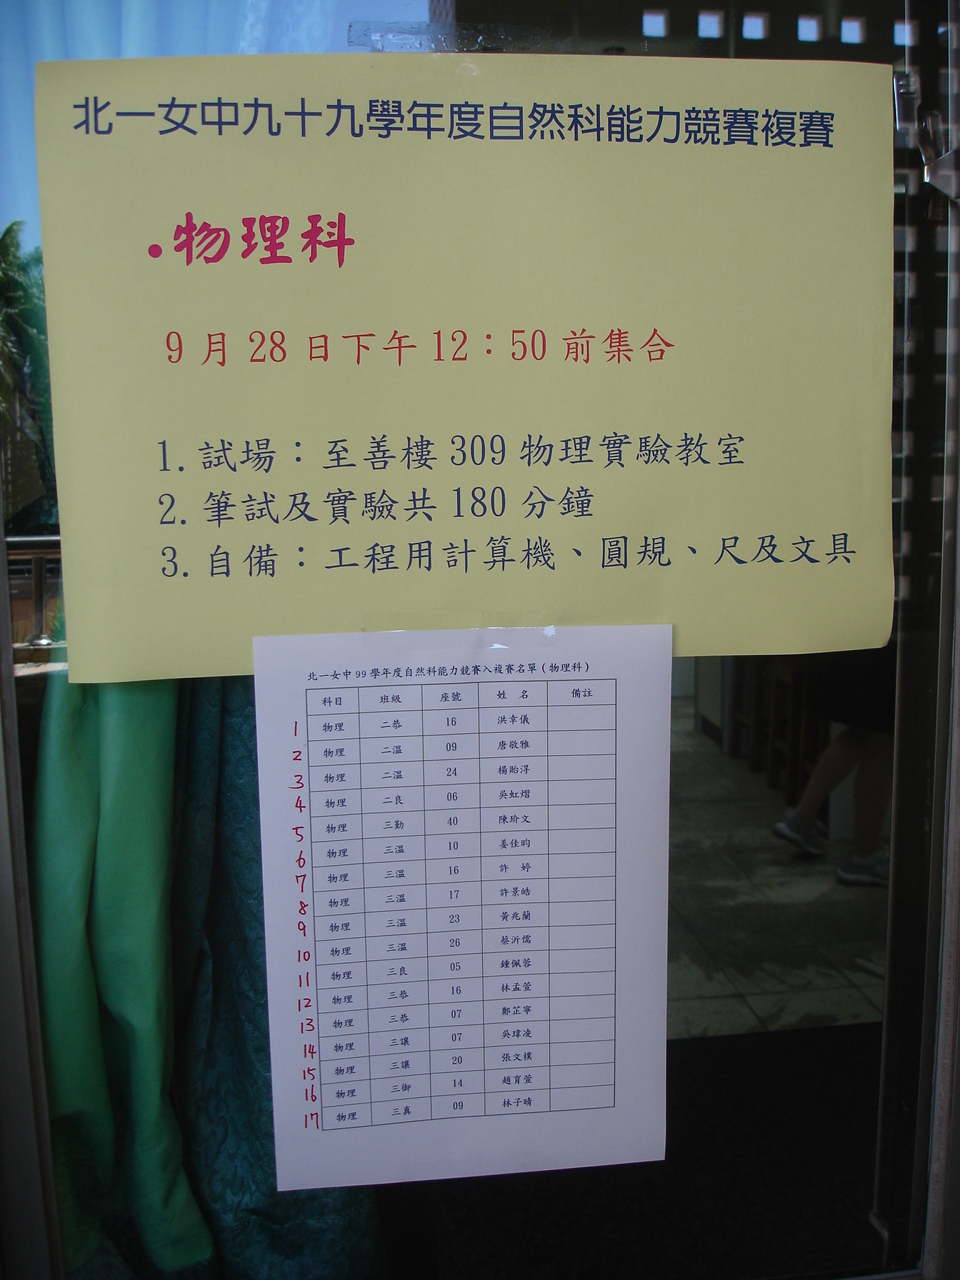 北一女中九十九學年度自然科能力競賽複賽
•物理科
9月28日下午12：50前集合
1.試場：至善樓309物理實驗教室
2.筆試及實驗共180分鐘
3.自備：工程用計算機、圓規、尺及文具
北一女中99學年度自然科能力競賽入複賽名單（物理科）
科目 班級 座號 姓 名 備註
1 物理 二恭 16 洪幸儀
2 物理 二溫 09 唐敬雅
3 物理 二溫 24 楊貽淂
4 物理 二良 06 吳虹熠
5 物理 三勤 40 陳玠文
6 物理 三溫 10 姜佳昀
7 物理 三溫 16 許 婷
8 物理 三溫 17 許景皓
9 物理 三溫 23 黃兆蘭
10 物理 三溫 26 蔡沂儒
11 物理 三良 05 鍾佩蓉
12 物理 三恭 16 林孟萱
13 物理 三恭 07 鄭芷寧
14 物理 三讓 07 吳瑋凌
15 物理 三讓 20 張文樸
16 物理 三御 14 趙育萱
17 物理 三真 09 林子晴